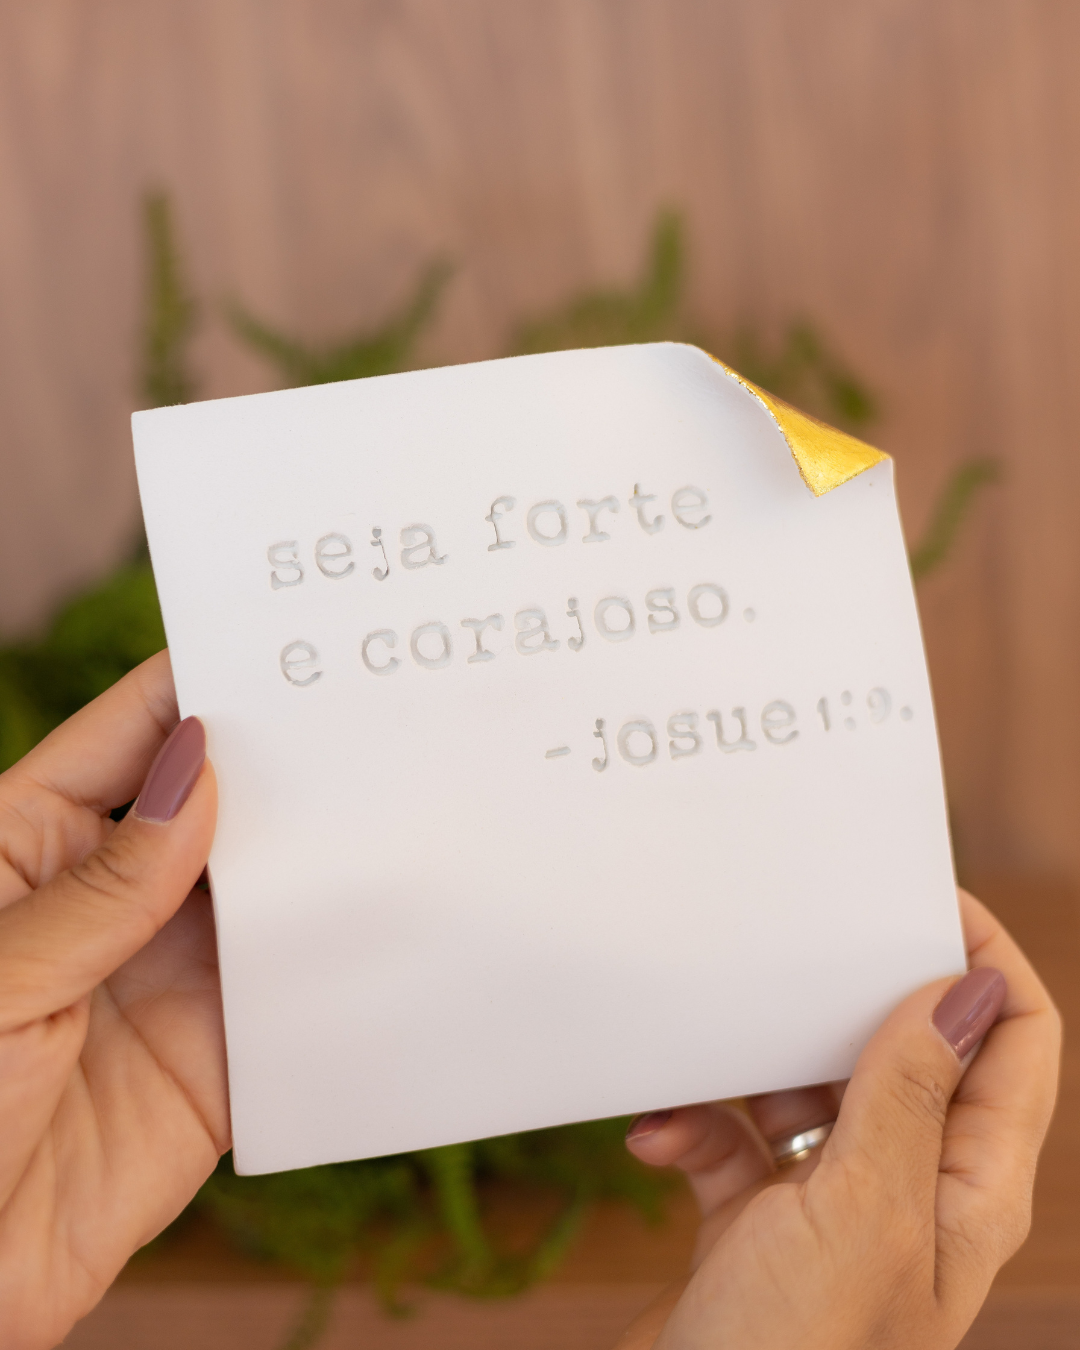 seja forte
e corajoso.
-josue 1:9.